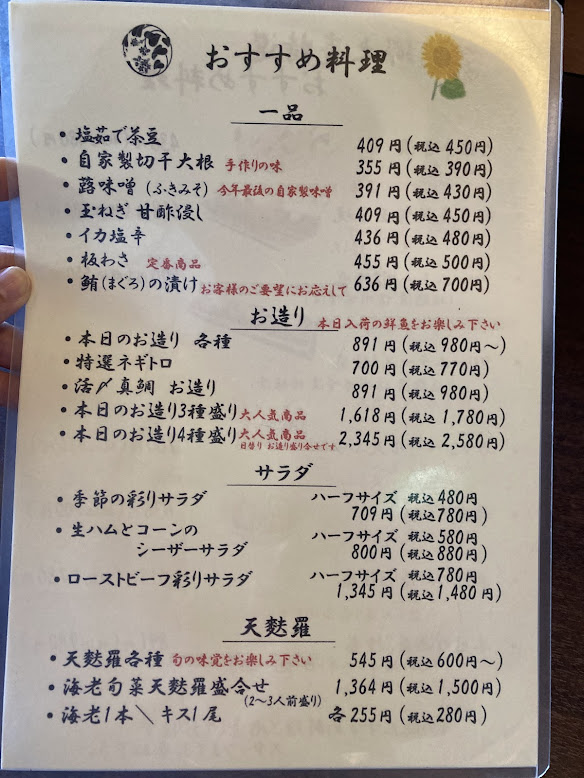 おすすめ料理
一品
・塩茹で茶豆 409円(税込450円)
・自家製切干大根 手作りの味 355円(税込390円)
・蕗味噌(ふきみそ)今年最後の自家製味噌 391円(税込430円)
・玉ねぎ 甘酢浸し 409円(税込450円)
・イカ塩辛 436円(税込480円)
・板わさ 定番商品 455円(税込500円)
・鮪(まぐろ)の漬け お客様のご要望にお応えして 636円(税込700円)
お造り 本日入荷の鮮魚をお楽しみ下さい
・本日のお造り 各種 891円(税込980円～)
・特選ネギトロ 700円(税込770円)
・活〆真鯛 お造り 891円(税込980円)
・本日のお造り3種盛り 大人気商品 1,618円(税込1,780円)
・本日のお造り4種盛り 大人気商品 2,345円(税込2,580円)
日替り お造り盛り合せです
サラダ
・季節の彩りサラダ ハーフサイズ 税込480円
709円(税込780円)
・生ハムとコーンの ハーフサイズ 税込580円
シーザーサラダ 800円(税込880円)
・ローストビーフ彩りサラダ ハーフサイズ 税込780円
1,345円(税込1,480円)
天麩羅
・天麩羅各種 旬の味覚をお楽しみ下さい 545円(税込600円～)
・海老旬菜天麩羅盛合せ 1,364円(税込1,500円)
(2～3人前盛り)
・海老1本＼キス1尾 各255円(税込280円)